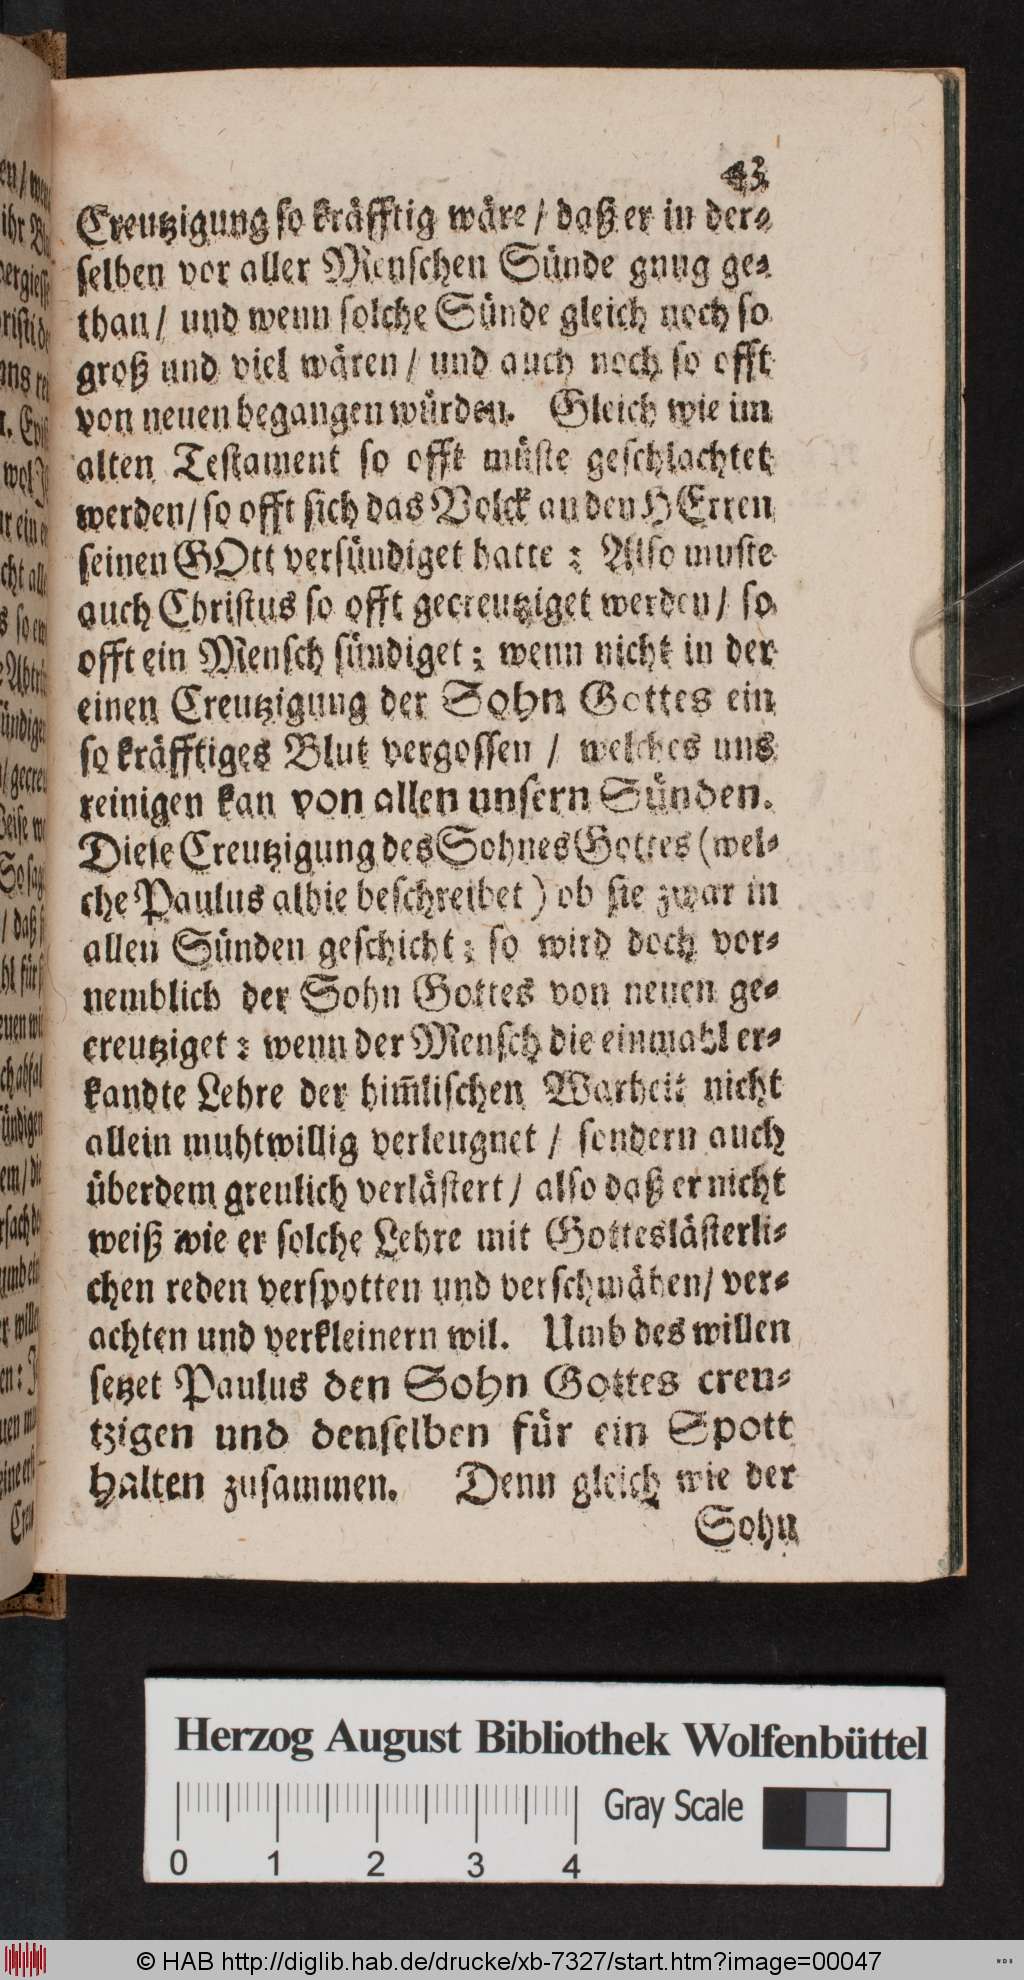 43
Creutzigung so kräfftig wäre / daß er in der⸗
selben vor aller Menschen Sünde gnug ge⸗
than / und wenn solche Sünde gleich noch so
groß und viel wären / und auch noch so offt
von neuen begangen würden. Gleich wie im
alten Testament so offt müste geschlachtet
werden / so offt sich das Volck an den HErren
seinen GOtt versündiget hatte : Also muste
auch Christus so offt gecreutziget werden / so
offt ein Mensch sündiget : wenn nicht in der
einen Creutzigung der Sohn Gottes ein
so kräfftiges Blut vergossen / welches uns
reinigen kan von allen unsern Sünden.
Diese Creutzigung des Sohnes Gottes (wel⸗
che Paulus alhie beschreibet) ob sie zwar in
allen Sünden geschicht : so wird doch vor⸗
nemblich der Sohn Gottes von neuen ge⸗
creutziget : wenn der Mensch die einmahl er⸗
kandte Lehre der him̄lischen Warheit nicht
allein muhtwillig verleugnet / sondern auch
überdem greulich verlästert / also daß er nicht
weiß wie er solche Lehre mit Gotteslästerli⸗
chen reden verspotten und verschmähen / ver⸗
achten und verkleinern wil. Umb des willen
setzet Paulus den Sohn Gottes creu⸗
tzigen und denselben für ein Spott
halten zusammen. Denn gleich wie der
Sohn
Herzog August Bibliothek Wolfenbüttel
Gray Scale
0 1 2 3 4
© HAB http://diglib.hab.de/drucke/xb-7327/start.htm?image=00047